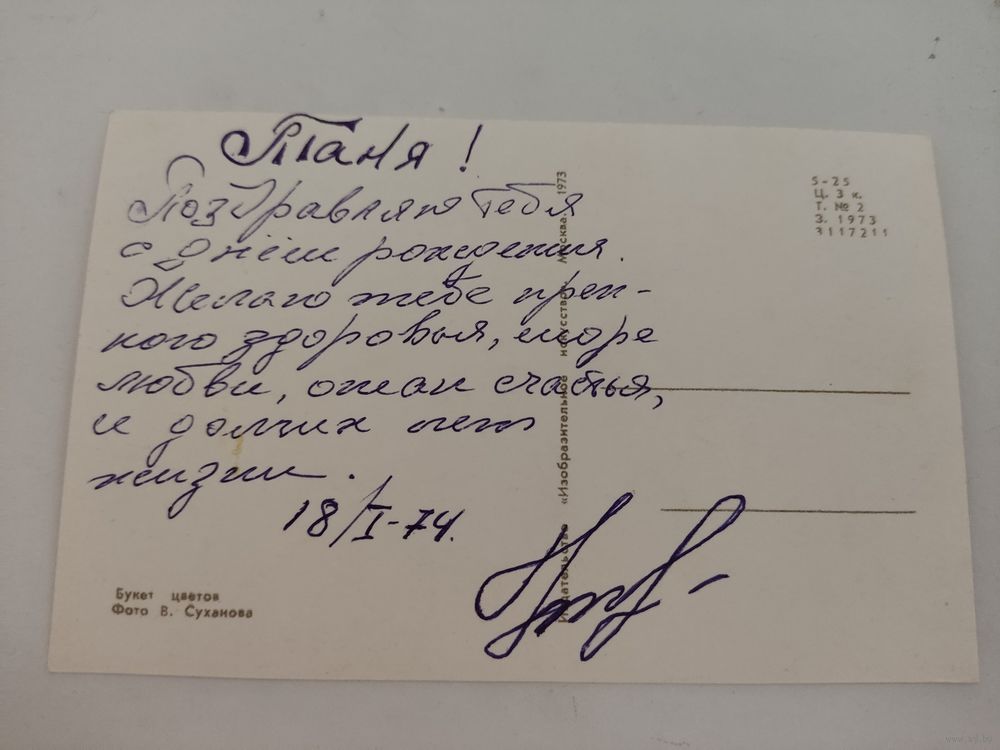 Таня!
Поздравляю тебя
с днём рождения.
Желаю тебе креп-
кого здоровья, море
любви, океан счастья,
и долгих лет
жизни.
18/I-74.
Букет цветов
Фото В. Суханова
Издательство «Изобразительное искусство». Москва. 1973
5-25
Ц. 3 к.
Т. № 2
З. 1973
3117211